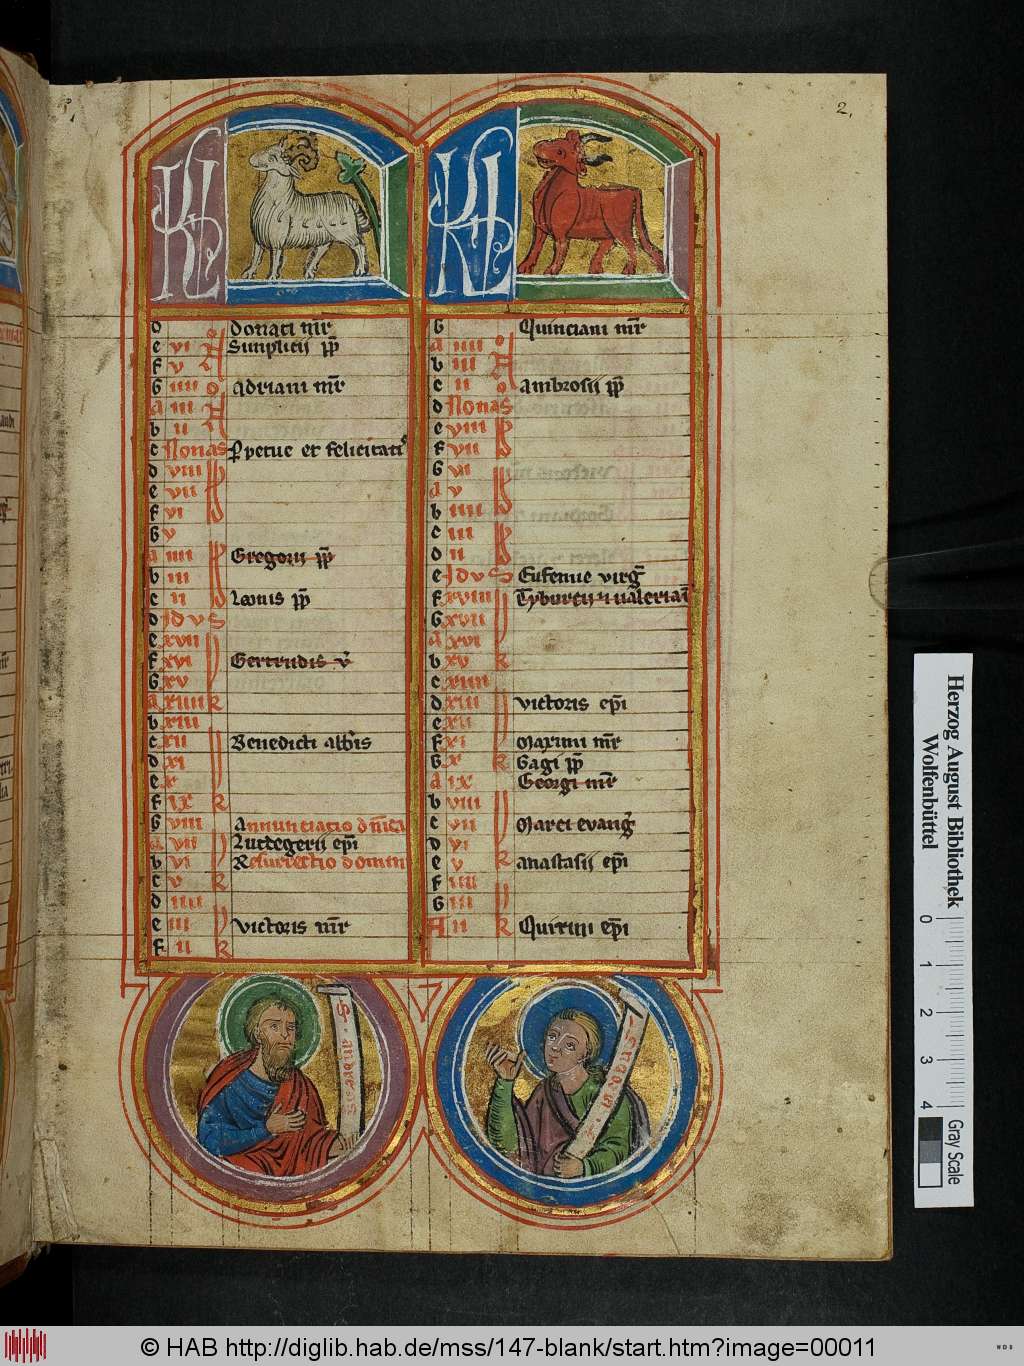 2.
KL
d Donati mr̄
e vi Simplicii pp̄
f v
G iiii Adriani mr̄
a iii
b ii
c Nonas Ꝑpetue et felicitatꝭ
d viii
e vii
f vi
G v
a iiii Gregorii pp̄
b iii
c ii Leonis pp̄
d Idus
e xvii
f xvi Gertrudis v̄
G xv
a xiiii k
b xiii
c xii Benedicti abb̄is
d xi
e x
f ix k
G viii Annunciacio dn̄ica
a vii Luttegerii ep̄i
b vi Resurrectio domini
c v k
d iiii
e iii Victoris mr̄
f ii k
S. andreas
KL
G Quinciani mr̄
a iiii
b iii
c ii Ambrosii pp̄
d Nonas
e viii
f vii
G vi
a v
b iiii
c iii
d ii
e Idus Eufemie virḡ
f xviii Tyburcii ⁊ valeriani
G xvii
a xvi
b xv k
c xiiii
d xiii Victoris ep̄i
e xii
f xi Maximi mr̄
G x k Gagi pp̄
a ix Georgi mr̄
b viii
c vii Marci evanḡ
d vi
e v k Anastasii ep̄i
f iiii
G iii
A ii k Quirini ep̄i
Herzog August Bibliothek
Wolfenbüttel
0 1 2 3 4
Gray Scale
© HAB http://diglib.hab.de/mss/147-blank/start.htm?image=00011